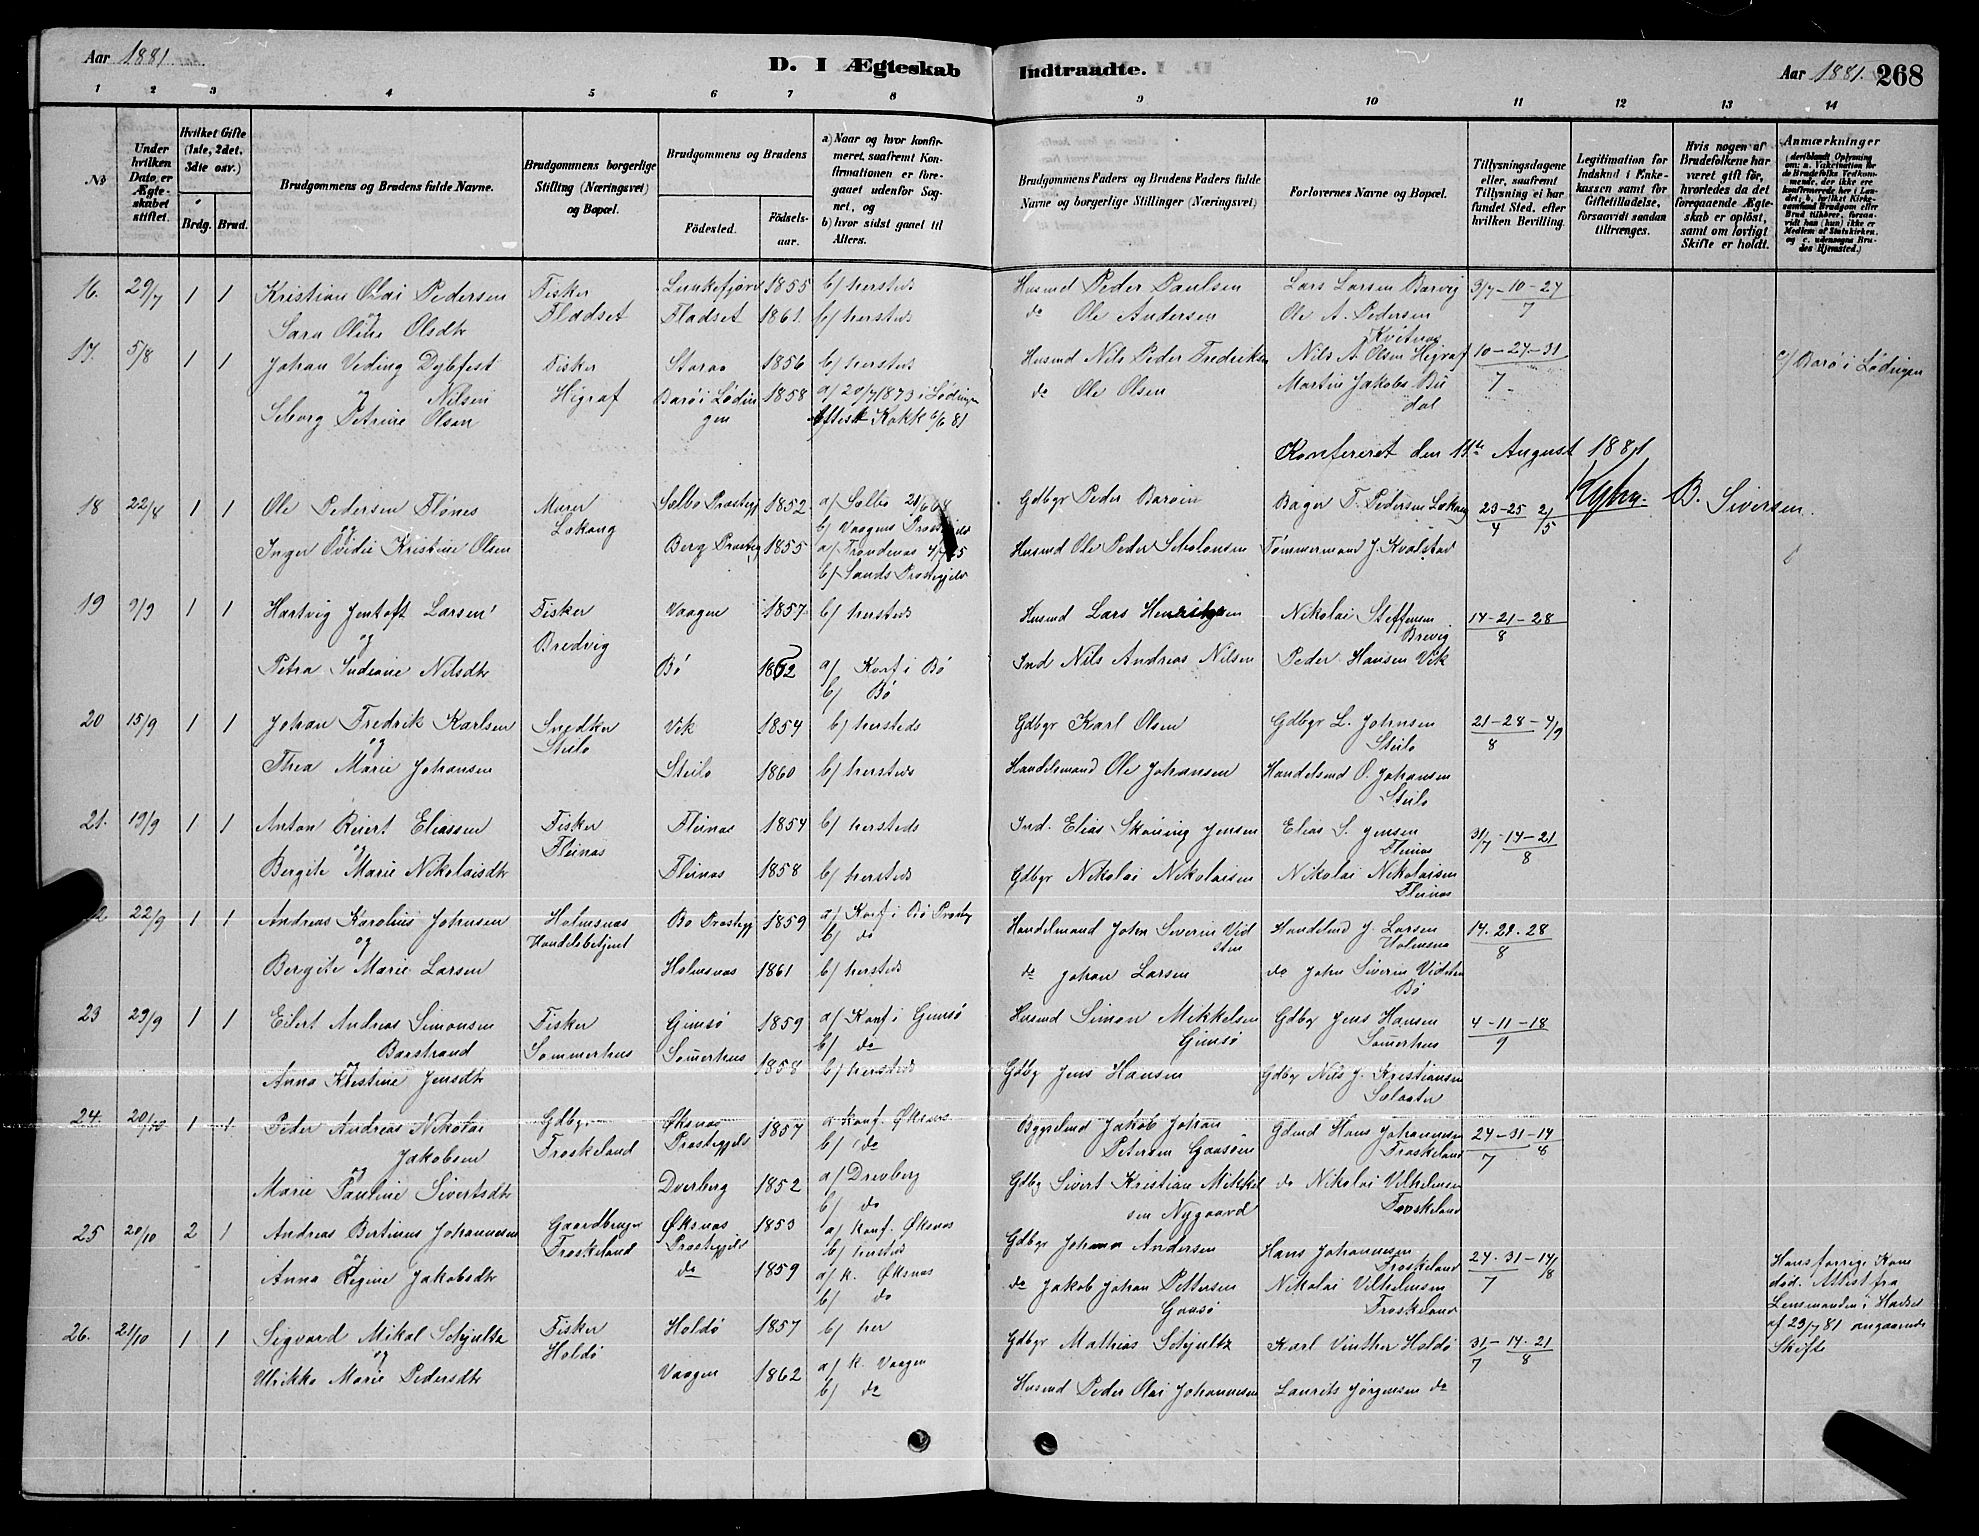 Aar 1881
D. I Ægteskab Indtraadte.
Aar 1881. 268
1 2 3 4 5 6 7 8 9 10 11 12 13 14
No
Under hvilken Dato er Ægteskabet stiftet.
Hvilket Gifte (1ste, 2det, 3dte osv.)
Brdg. Brud.
Brudgommens og Brudens fulde Navne.
Brudgommens borgerlige Stilling (Næringsvei) og Bopæl.
Brudgommens og Brudens
Fødested. Fødselsaar.
a) Naar og hvor konfirmeret, saafremt Konfirmationen er foregaaet udenfor Sognet, og
b) hvor sidst gaaet til Alters.
Brudgommens Faders og Brudens Faders fulde Navne og borgerlige Stillinger (Næringsvei)
Forlovernes Navne og Bopæl.
Tillysningsdagene eller, saafremt Tillysning ei har fundet Sted, efter hvilken Bevilling.
Legitimation for Indskud i Enkekassen samt for Giftetilladelse, forsaavidt saadan tiltrænges.
Hvis nogen af Brudefolkene har været gift før, hvorledes da det foregaaende Ægteskab er opløst, samt om lovligt Skifte er holdt.
Anmærkninger
16. 29/7 1 1 Kristian Olai Pedersen Fisker 1855 b/ hersteds Husmd Peder Paulsen Lars Larsen Barvig 3/7-10-24
og Fladset
Sara Oline Olsdtr Fladset 1861. b/ hersteds do Ole Andersen Ole A. Pedersen 7
17. 5/8 1 1 Johan Veding Dybfest Fisker 1856 b/ hersteds Husmd Nils Peder Fredriksen Nils A. Olsen Higraf 10-24-31 c/ Barøi Lødingen
og Nilsen Higraf Barøi Lødingen 1858 a/ 20/7 1873 i Lødingen do Ole Olsen Martin Jakobs 7
Petrine Olsen Attest 6/6 81
Konfereret den 11te August 1881
B. Siversen
18 22/8 1 1 Ole Pedersen Flønes Murer Sælbo Prostegj 1852 a/ Sælbo 21/6 68 Gdbgr Peder Bager T. Pedersen 23-25 2/5
og b/ Vaagens Prostegjeld 4
Inger Kristine Olsen Berg Prosteg 1855 a/ Trondenes Husmd Ole Peder Tømmermand J. Kvalstad
b/ Sands Prostegjeld
19 9/9 1 1 Hartvig Jentoft Larsen Fisker Vaagen 1857 b/ hersteds Husmd Lars Henriksen Nikolai Steffensen 14-21-28
og Bredvig Brevig 8
Petra Indiane Nilsdtr Bø 1862 a/ Konf i Bø Ind Nils Andreas Nilsen Peder Hansen Vik
b/ Bø
20 15/9 1 1 Johan Fredrik Karlsen Snedker Vik 1854 b/ hersteds Gdbgr Karl Olsen Gdbgr L. Johnsen 21-28-4/9
og Steilo Steilo 8
Thea Marie Johansen Steilo 1860 b/ hersteds Handelsmand Ole Johansen Handelsmd O. Johansen
Steilo
21. 19/9 1 1 Anton Reiert Eliassen Fisker Fleinas 1854 b/ hersteds Ind. Elias Skaning Jensen Elias S. Jensen 31/7-14-21
og Fleinas Fleinas 8
Bergite Marie Nikolaisdtr Fleinas 1858 b/ hersteds Gdbgr Nikolai Nikolaisen Nikolai Nikolaisen
Fleinas
22/9 1 1 Andreas Karolius Johnsen Holmsnas Bø Prostegj 1859 a/ Konf i Bø Prosteg Handelmand John Siverin Vid Handelmd J. Larsen 14.22.28
og Handelsbetjent b/ do sten Holmsna 8
Bergite Marie Larsen Holmsnas 1861 b/ hersteds do Johan Larsen do John Siverin Vidsten
Bø
23 29/9 1 1 Eilert Andreas Simonsen Fisker Gimsø 1859 a/ Konf i Gimsø Husmd Simon Mikkelsen Gdbg Jens Hansen 4-11-18
Barstrand Sommerhus Somerhus b/ do Gimsø Somerhus 9
Anna Kristine Jensdtr 1858 b/ hersteds Gdbg Jens Hansen Gdbg Nils J. Kristiansen
24. 20/10 1 1 Peder Andreas Nikolai Gdbg. Øksnas 1857 a Konf. Øksnas Jakob Johan Gdmd Hans Johannesen 24-31-14/8
Jakobsen Froskeland Prostegjeld b/ do Petersen Gaasøen Froskeland 7
og
Marie Pauline Sivertsdtr Dverberg 1852 a/ Dverberg Gdbg Sivert Kristian Mikkel do Nikolai Vilhelmsen
b/ do sen Nygaard Froskeland
25 20/10 2 1 Andreas Bertinus Johannesen Gaardbruger Øksnas 1853 a/ Konf. Øksnas Gdbgr Johan Andersen Hans Johannesen 24-31-14/8
og Froskeland Prostegjeld b/ hersteds Froskeland 7
Anna Regine Jakobsdtr do 1859 a/ K. Øksnas do Jakob Johan Pettersen Nikolai Vilhelmsen
b/ do Gaasø Froskeland
Hans forrige Kone
død. Attest fra
Lensmanden i Hadsel
af 29/7 81 angaaende
Skifte
26. 21/10 1 1 Sigvard Mikal Schjultz Fisker Holdø 1857 b/ her Gdbgr Mathias Schjultz Karl Vinther Holdø 31-14-21
og Holdø 7 8
Ulrikka Marie Pedersdtr Vaagen 1862 a/ K. Vaagen Husmd Peder Olai Johannesen Laurits Jørgensen do
b/ do